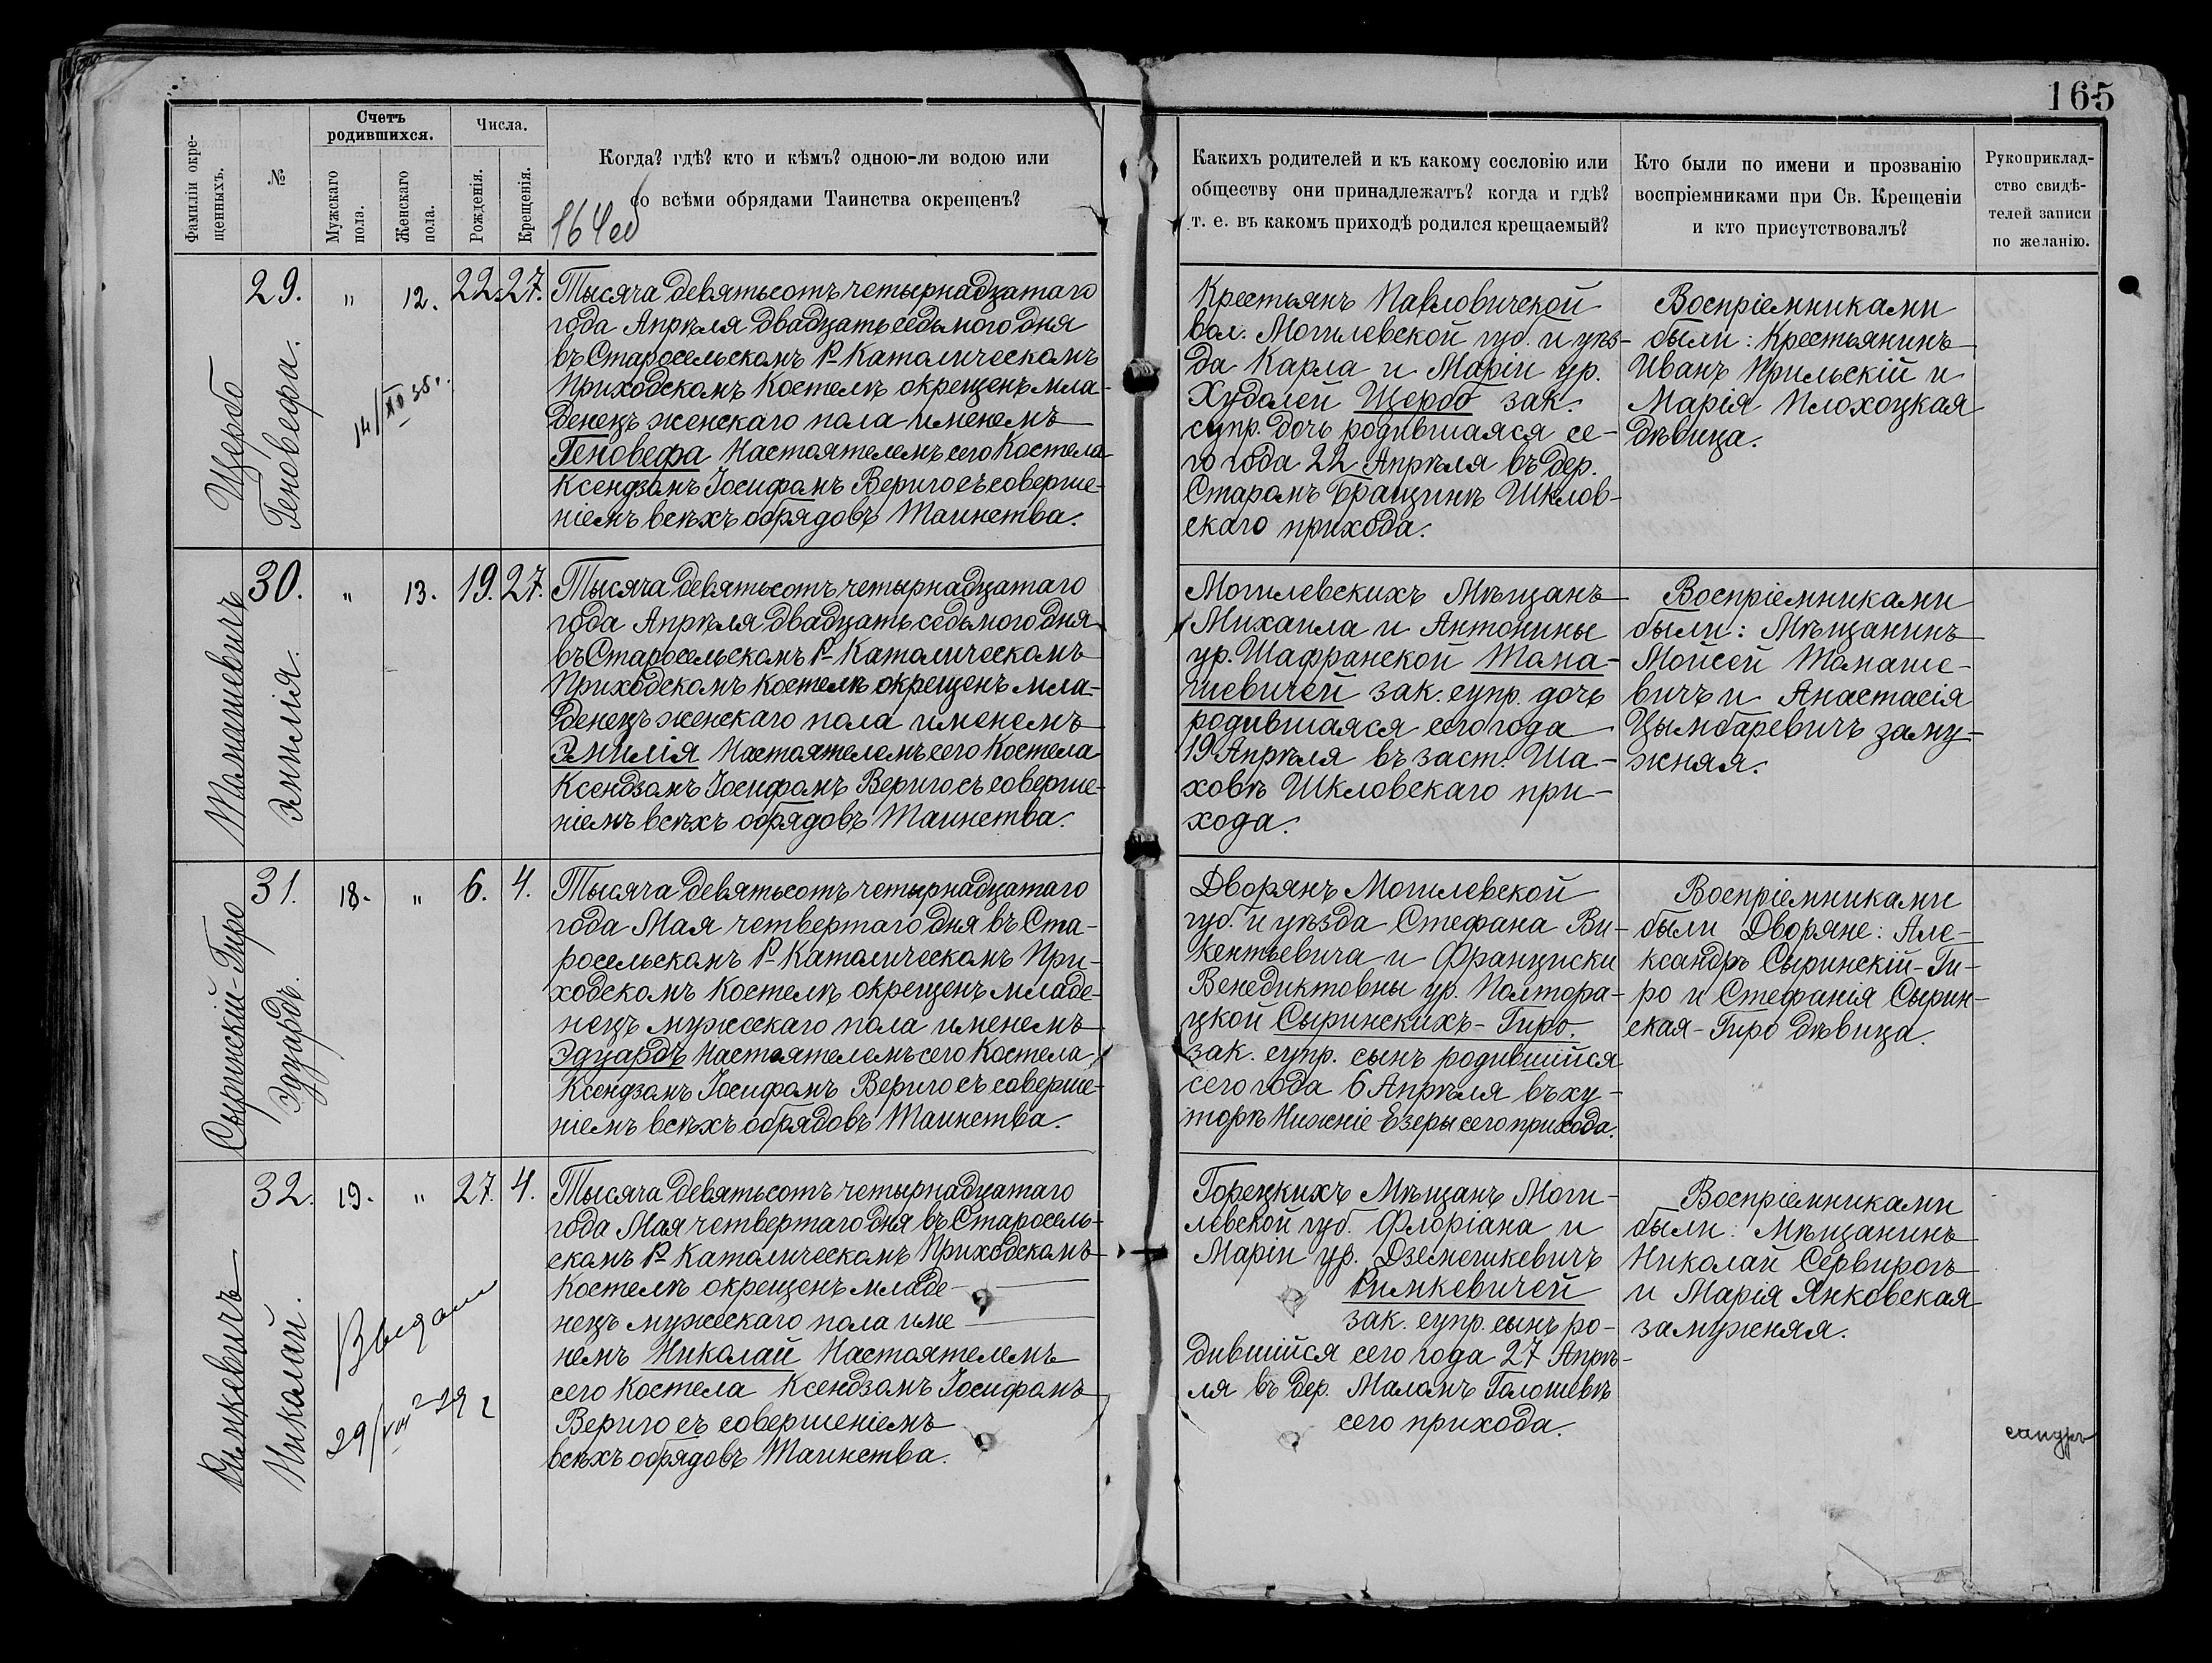 165
Фамиліи окре-
щенныхъ.
№
Счетъ
родившихся.
Мужскаго
пола.
Женскаго
пола.
Числа.
Рожденія.
Крещенія.
Когда? гдѣ? кто и кѣмъ? одною-ли водою или
со всѣми обрядами Таинства окрещенъ?
164об
Какихъ родителей и къ какому сословію или
обществу они принадлежатъ? когда и гдѣ?
т. е. въ какомъ приходѣ родился крещаемый?
Кто были по имени и прозванію
воспріемниками при Св. Крещеніи
и кто присутствовалъ?
Рукоприклад-
ство свидѣ-
телей записи
по желанію.
Щербо
Геновефа.
29.
"
12.
22.
27.
14/XI 35г.
Тысяча девятьсотъ четырнадцатаго
года Апрѣля двадцать седьмого дня
въ Старосельскомъ Р-Католическомъ
Приходскомъ Костелѣ окрещенъ мла-
денецъ женскаго пола именемъ
Геновефа Настоятелемъ сего Костела
Ксендзомъ Іосифомъ Вериго съ соверше-
ніемъ всѣхъ обрядовъ Таинства.
Крестьянъ Павловичской
вол. Могилевской губ. и уѣз-
да Карла и Маріи ур.
Худолей Щербо зак.
супр. дочь родившаяся се-
го года 22 Апрѣля въ дер.
Старомъ Бращинѣ Шклов-
скаго прихода.
Воспріемниками
были: Крестьянинъ
Иванъ Прильскій и
Марія Плохоцкая
дѣвица.
Томашевичъ
Эмилія.
30.
"
13.
19.
27.
Тысяча девятьсотъ четырнадцатаго
года Апрѣля двадцать седьмого дня
въ Старосельскомъ Р-Католическомъ
Приходскомъ Костелѣ окрещенъ мла-
денецъ женскаго пола именемъ
Эмилія Настоятелемъ сего Костела
Ксендзомъ Іосифомъ Вериго съ соверше-
ніемъ всѣхъ обрядовъ Таинства.
Могилевскихъ Мѣщанъ
Михаила и Антонины
ур. Шафранской Тома-
шевичей зак. супр. дочь
родившаяся сего года
19 Апрѣля въ заст. Ша-
ховѣ Шкловскаго при-
хода.
Воспріемниками
были: Мѣщанинъ
Мойсей Томаше-
вичъ и Анастасія
Цымбаревичъ заму-
жняя.
Сыринскій-Гиро
Эдуардъ.
31.
18.
"
6.
4.
Тысяча девятьсотъ четырнадцатаго
года Мая четвертаго дня въ Ста-
росельскомъ Р-Католическомъ При-
ходскомъ Костелѣ окрещенъ младе-
нецъ мужескаго пола именемъ
Эдуардъ Настоятелемъ сего Костела
Ксендзомъ Іосифомъ Вериго съ соверше-
ніемъ всѣхъ обрядовъ Таинства.
Дворянъ Могилевской
губ. и уѣзда Стефана Ви-
кентьевича и Франциски
Венедиктовны ур. Полтора-
цкой Сыринскихъ-Гиро.
зак. супр. сынъ родившійся
сего года 6 Апрѣля въ ху-
торѣ Нижніе Езеры сего прихода.
Воспріемниками
были Дворяне: Але-
ксандръ Сыринскій-Ги-
ро и Стефанія Сырин-
ская-Гиро дѣвица.
Римкевичъ
Николай.
32.
19.
"
27.
4.
Выдали
29/VIII-29 г
Тысяча девятьсотъ четырнадцатаго
года Мая четвертаго дня въ Старосель-
скомъ Р-Католическомъ Приходскомъ
Костелѣ окрещенъ младе-
нецъ мужескаго пола име
немъ Николай Настоятелемъ
сего Костела Ксендзомъ Іосифомъ
Вериго съ совершеніемъ
всѣхъ обрядовъ Таинства.
Горецкихъ Мѣщанъ Моги-
левской губ. Флоріана и
Маріи ур. Дземешкевичъ
Римкевичей
зак. супр. сынъ ро-
дившійся сего года 27 Апрѣ-
ля въ дер. Маломъ Голошевѣ
сего прихода.
Воспріемниками
были: Мѣщанинъ
Николай Сервирогъ
и Марія Янковская
замужняя.